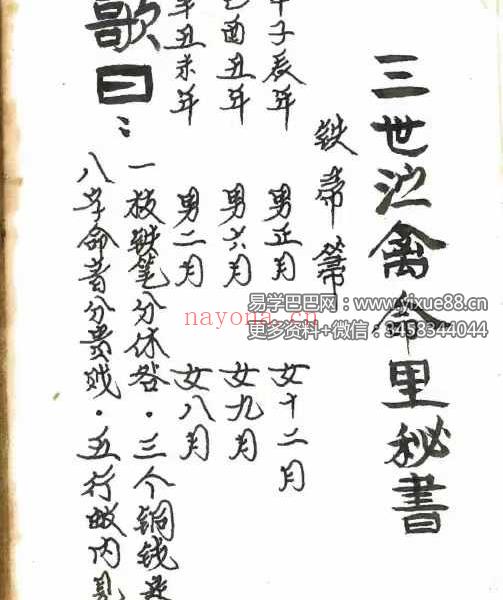 三世演禽命里秘書
铁帚箒
子辰年 男正月 女十二月
酉丑年 男六月 女九月
丑未年 男二月 女八月
歌曰：
一枝铁笔分休咎．三个铜钱
八字命書分贵贱．五行 内见
易学巴巴网：www.yixue88.cn
更多资料+微信：3458344044
nayona.cn